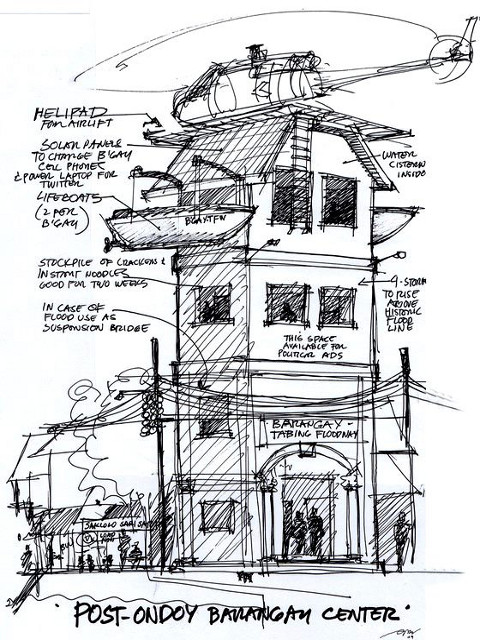 HELIPAD
FOR AIRLIFT
SOLAR PANELS
TO CHARGE B'GAY
CELL PHONES
& POWER LAPTOP FOR
TWITTER
LIFEBOATS
(2 PER
B'GAY)
WATER
CISTERN
INSIDE
STOCKPILE OF CRACKERS &
INSTANT NOODLES
GOOD FOR TWO WEEKS
4-STORY
TO RISE
ABOVE
HISTORIC
FLOOD
LINE
IN CASE OF
FLOOD USE AS
SUSPENSION BRIDGE
THIS SPACE
AVAILABLE FOR
POLITICAL ADS
BARANGAY
TABING FLOODWAY
SARI
"POST-ONDOY BARANGAY CENTER"